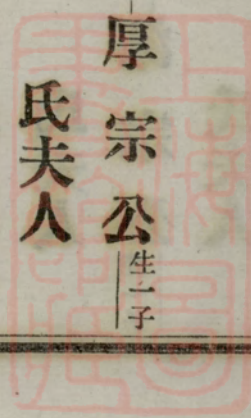 厚宗公生一子
氏夫人